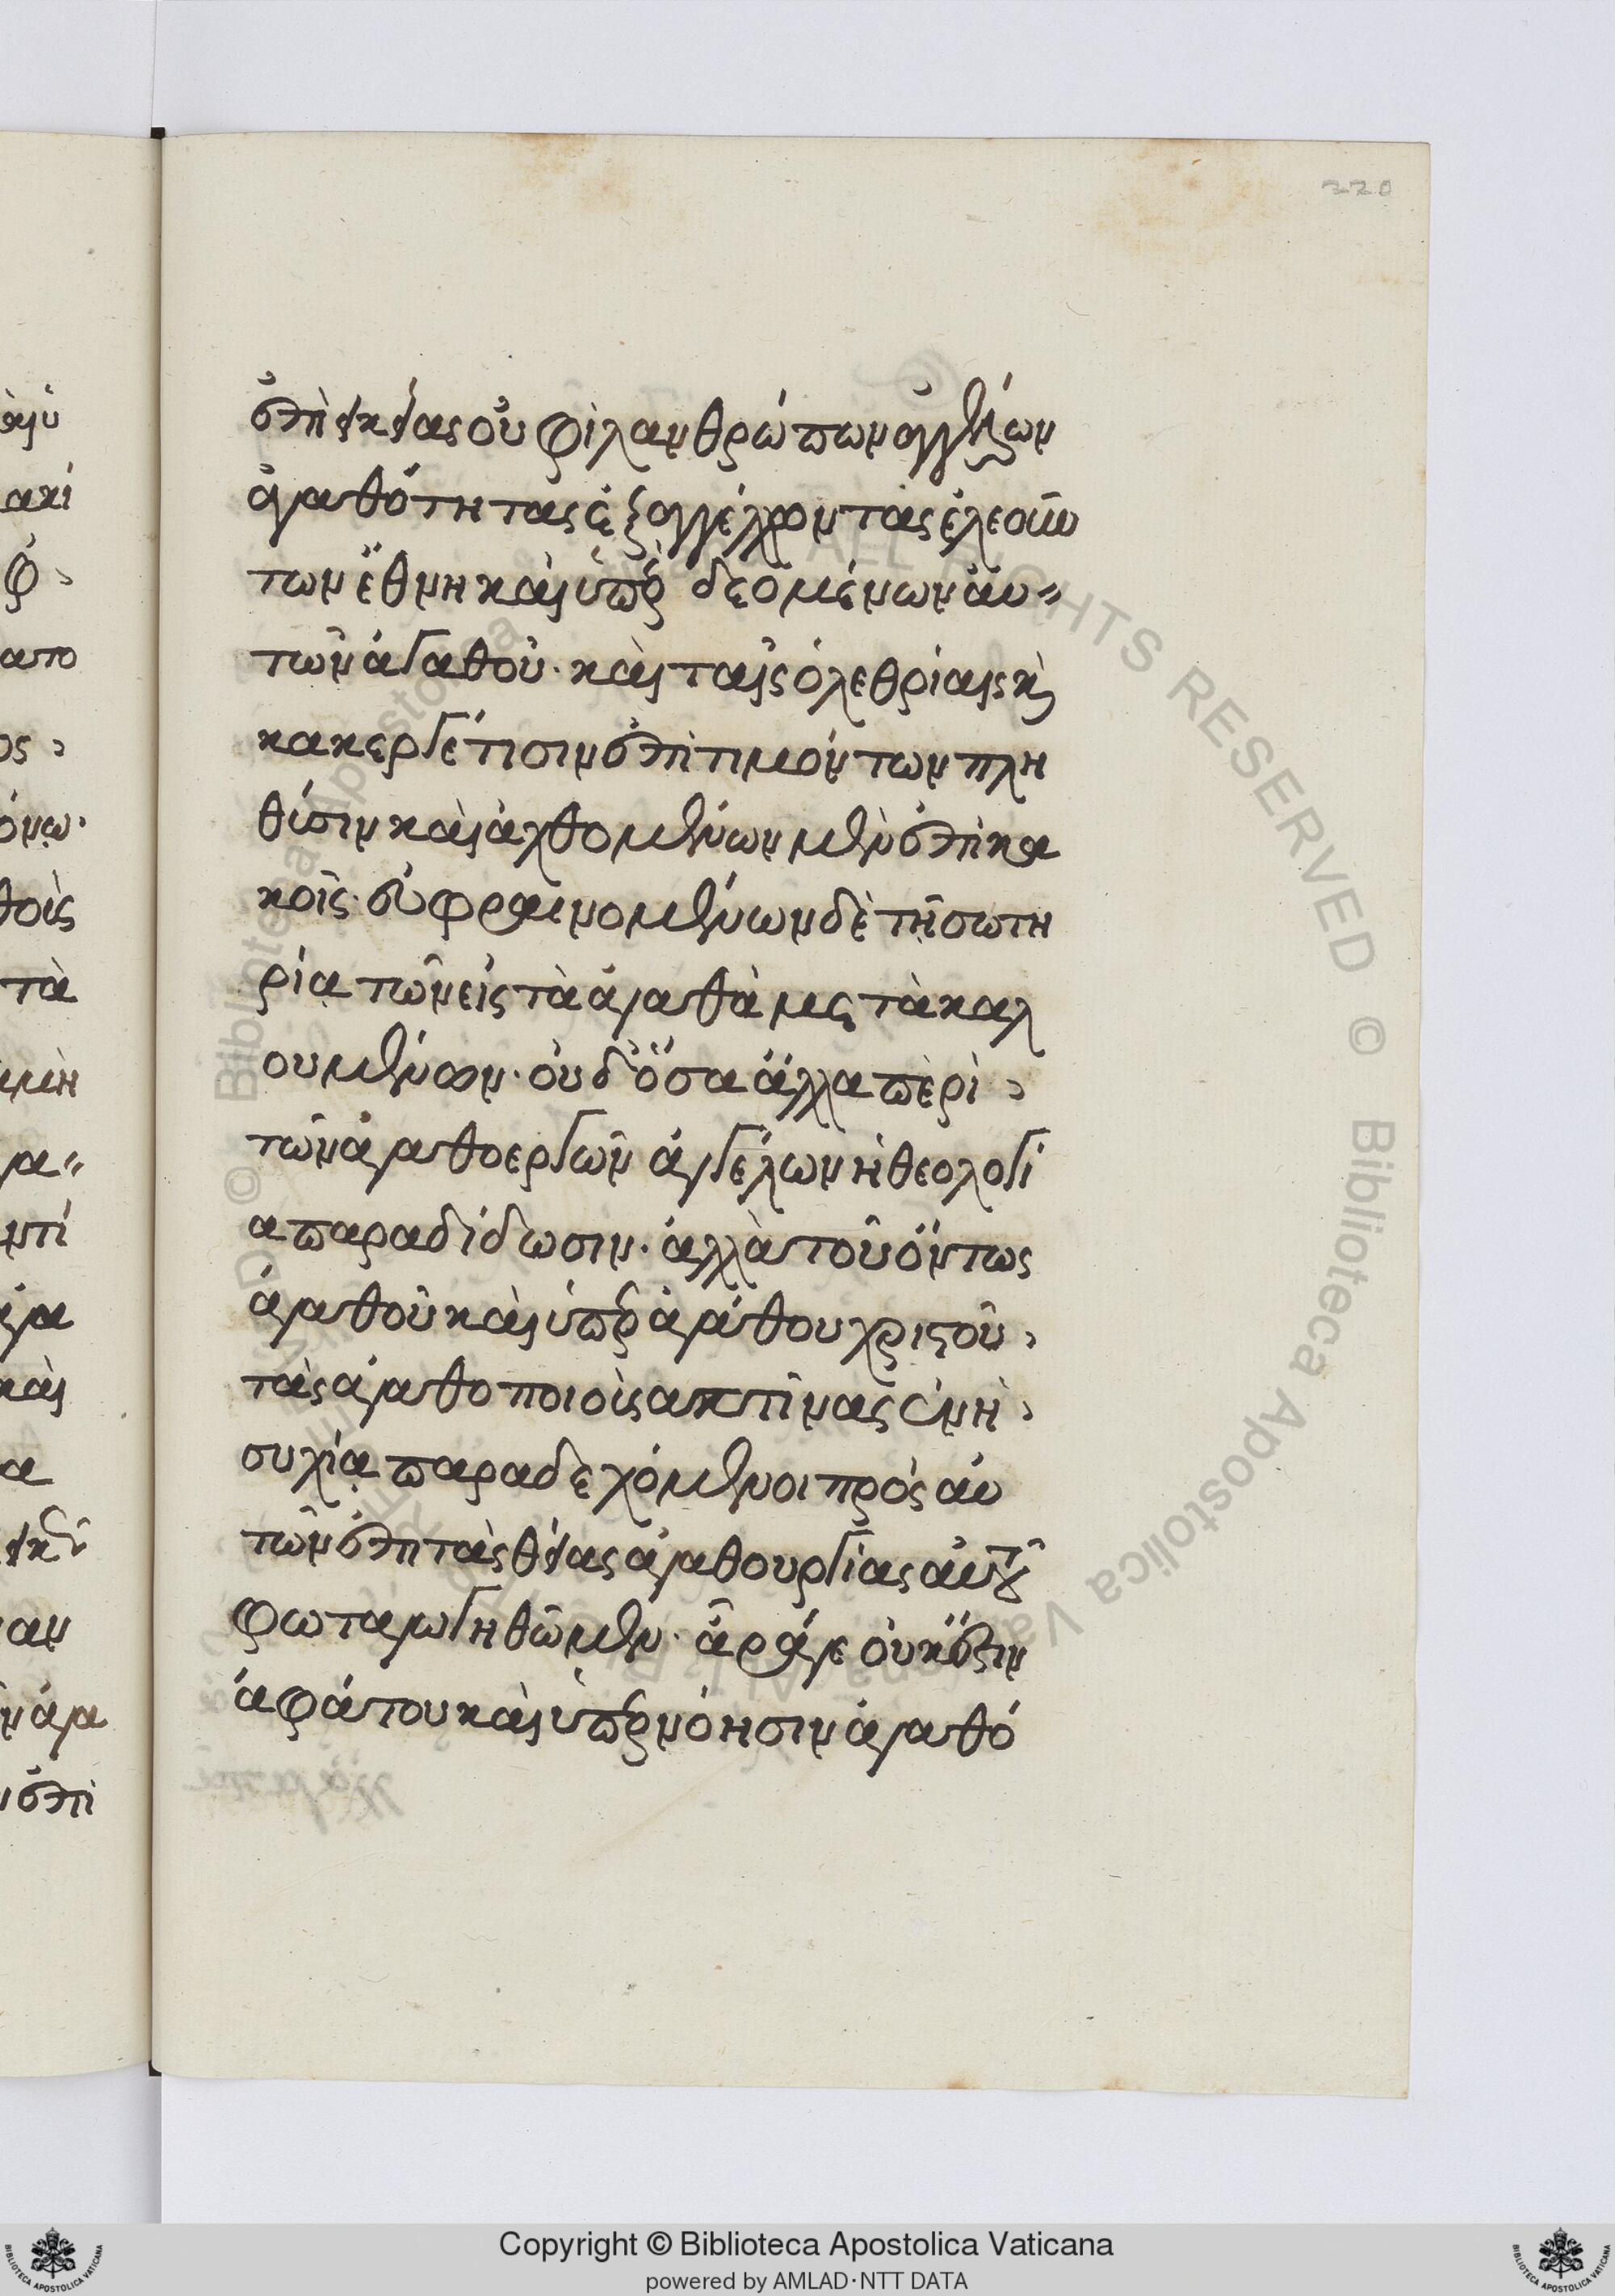 220
ἐπιεικείας οὐ φιλανθρώπων ἀγγέλων
ἀγαθότητας ἐξαγγέλλοντας ἐλεούν
των ἔθνη καὶ ὑπὲρ δεομένων αὐ〃
τῶν ἀγαθοῦ· καὶ ταῖς ὀλεθρίαις κὶ
κακεργέτισιν ἐπιτιμόντων πλη
θύσιν καὶ ἀχθομένων μὲν ἐπὶ κα
κοῖς· εὐφραινομένων δὲ τῇ σωτη
ρίᾳ τῶν εἰς τὰ ἀγαθὰ μετακαλ
ουμένων· οὐδ᾽ ὅσα ἄλλα περὶ
τῶν ἀγαθοεργῶν ἀγγέλων ἡ θεολογί
α παραδίδωσιν· ἀλλὰ τοῦ ὄντως
ἀγαθοῦ καὶ ὑπὲρ ἀγάθου χριστοῦ
τὰς ἀγαθοποιοὺς ακτῖνας ἐν ἡ
συχίᾳ παραδεχόμενοι πρὸς αὐ
τῶν ἐπι τὰς θείας ἀγαθουργίας αὐτοῦ
φωταγωγηθῶμεν· ἆρά γε οὐκ ἔστιν
ἀφάτου καὶ ὑπὲρ νόησιν ἀγαθό
Copyright © Biblioteca Apostolica Vaticana
powered by AMLAD·NTT DATA